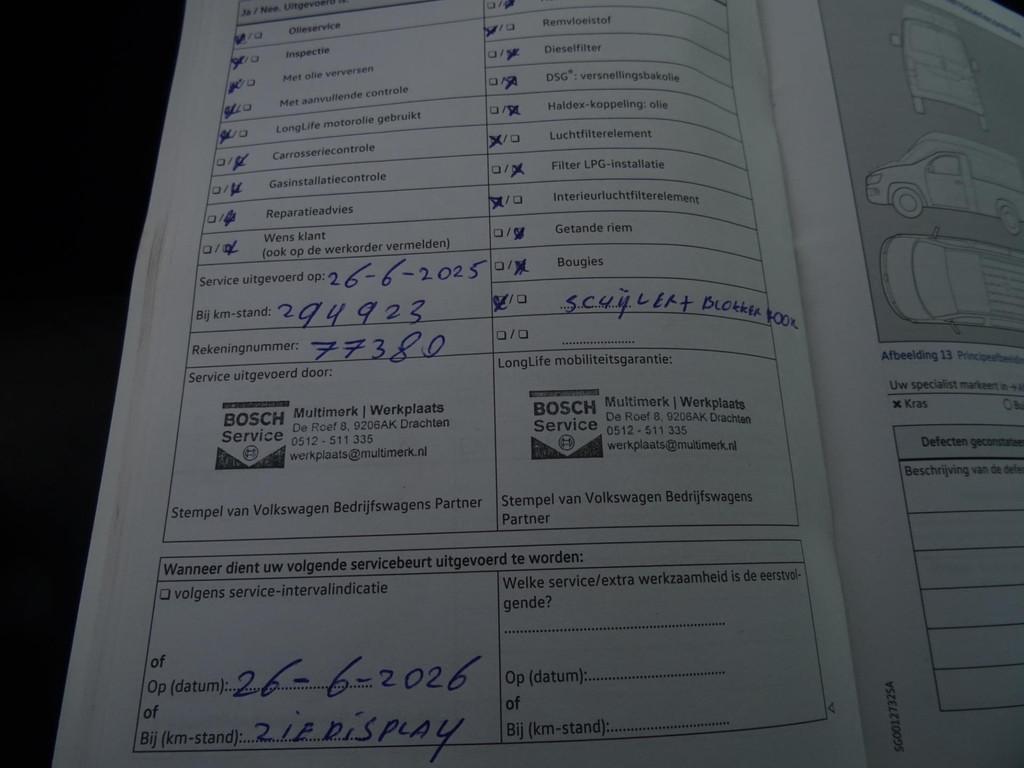 Ja / Nee. Uitgevoerd is:
Olieservice
Inspectie
Met olie verversen
Met aanvullende controle
LongLife motorolie gebruikt
Carrosseriecontrole
Gasinstallatiecontrole
Reparatieadvies
Wens klant
(ook op de werkorder vermelden)
Service uitgevoerd op: 26-6-2025
Bij km-stand: 294923
Rekeningnummer: 77380
Remvloeistof
Dieselfilter
DSG®: versnellingsbakolie
Haldex-koppeling: olie
Luchtfilterelement
Filter LPG-installatie
Interieurluchtfilterelement
Getande riem
Bougies
BLOKKEN
Service uitgevoerd door:
BOSCH
Service
Multimerk | Werkplaats
De Roef 8, 9206AK Drachten
0512 - 511 335
werkplaats@multimerk.nl
Stempel van Volkswagen Bedrijfswagens Partner
LongLife mobiliteitsgarantie:
BOSCH
Service
Multimerk | Werkplaats
De Roef 8, 9206AK Drachten
0512 - 511 335
werkplaats@multimerk.nl
Stempel van Volkswagen Bedrijfswagens
Partner
Wanneer dient uw volgende servicebeurt uitgevoerd te worden:
volgens service-intervalindicatie
of
Op (datum): 26-6-2026
of
Bij (km-stand): ZIE DISPLAY
Welke service/extra werkzaamheid is de eerstvol-
gende?
Op (datum):
of
Bij (km-stand):
Afbeelding 13
Uw specialist markeert in
Kras
Defecten
Beschrijving van de
SG00127325A